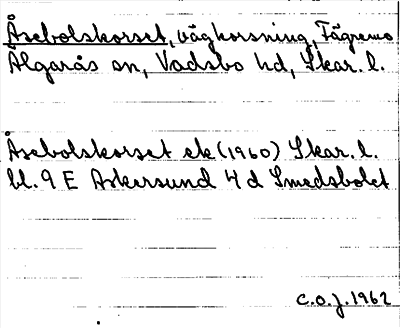 Åsebolskorset, vägkorsning, Fägremo
Älgarås sn, Vadsbo hd, Skar. l.
Åsebolskorset ek (1960) Skar. l.
bl. 9 E Askersund 4 d Smedsbolet
C.O.J. 1962